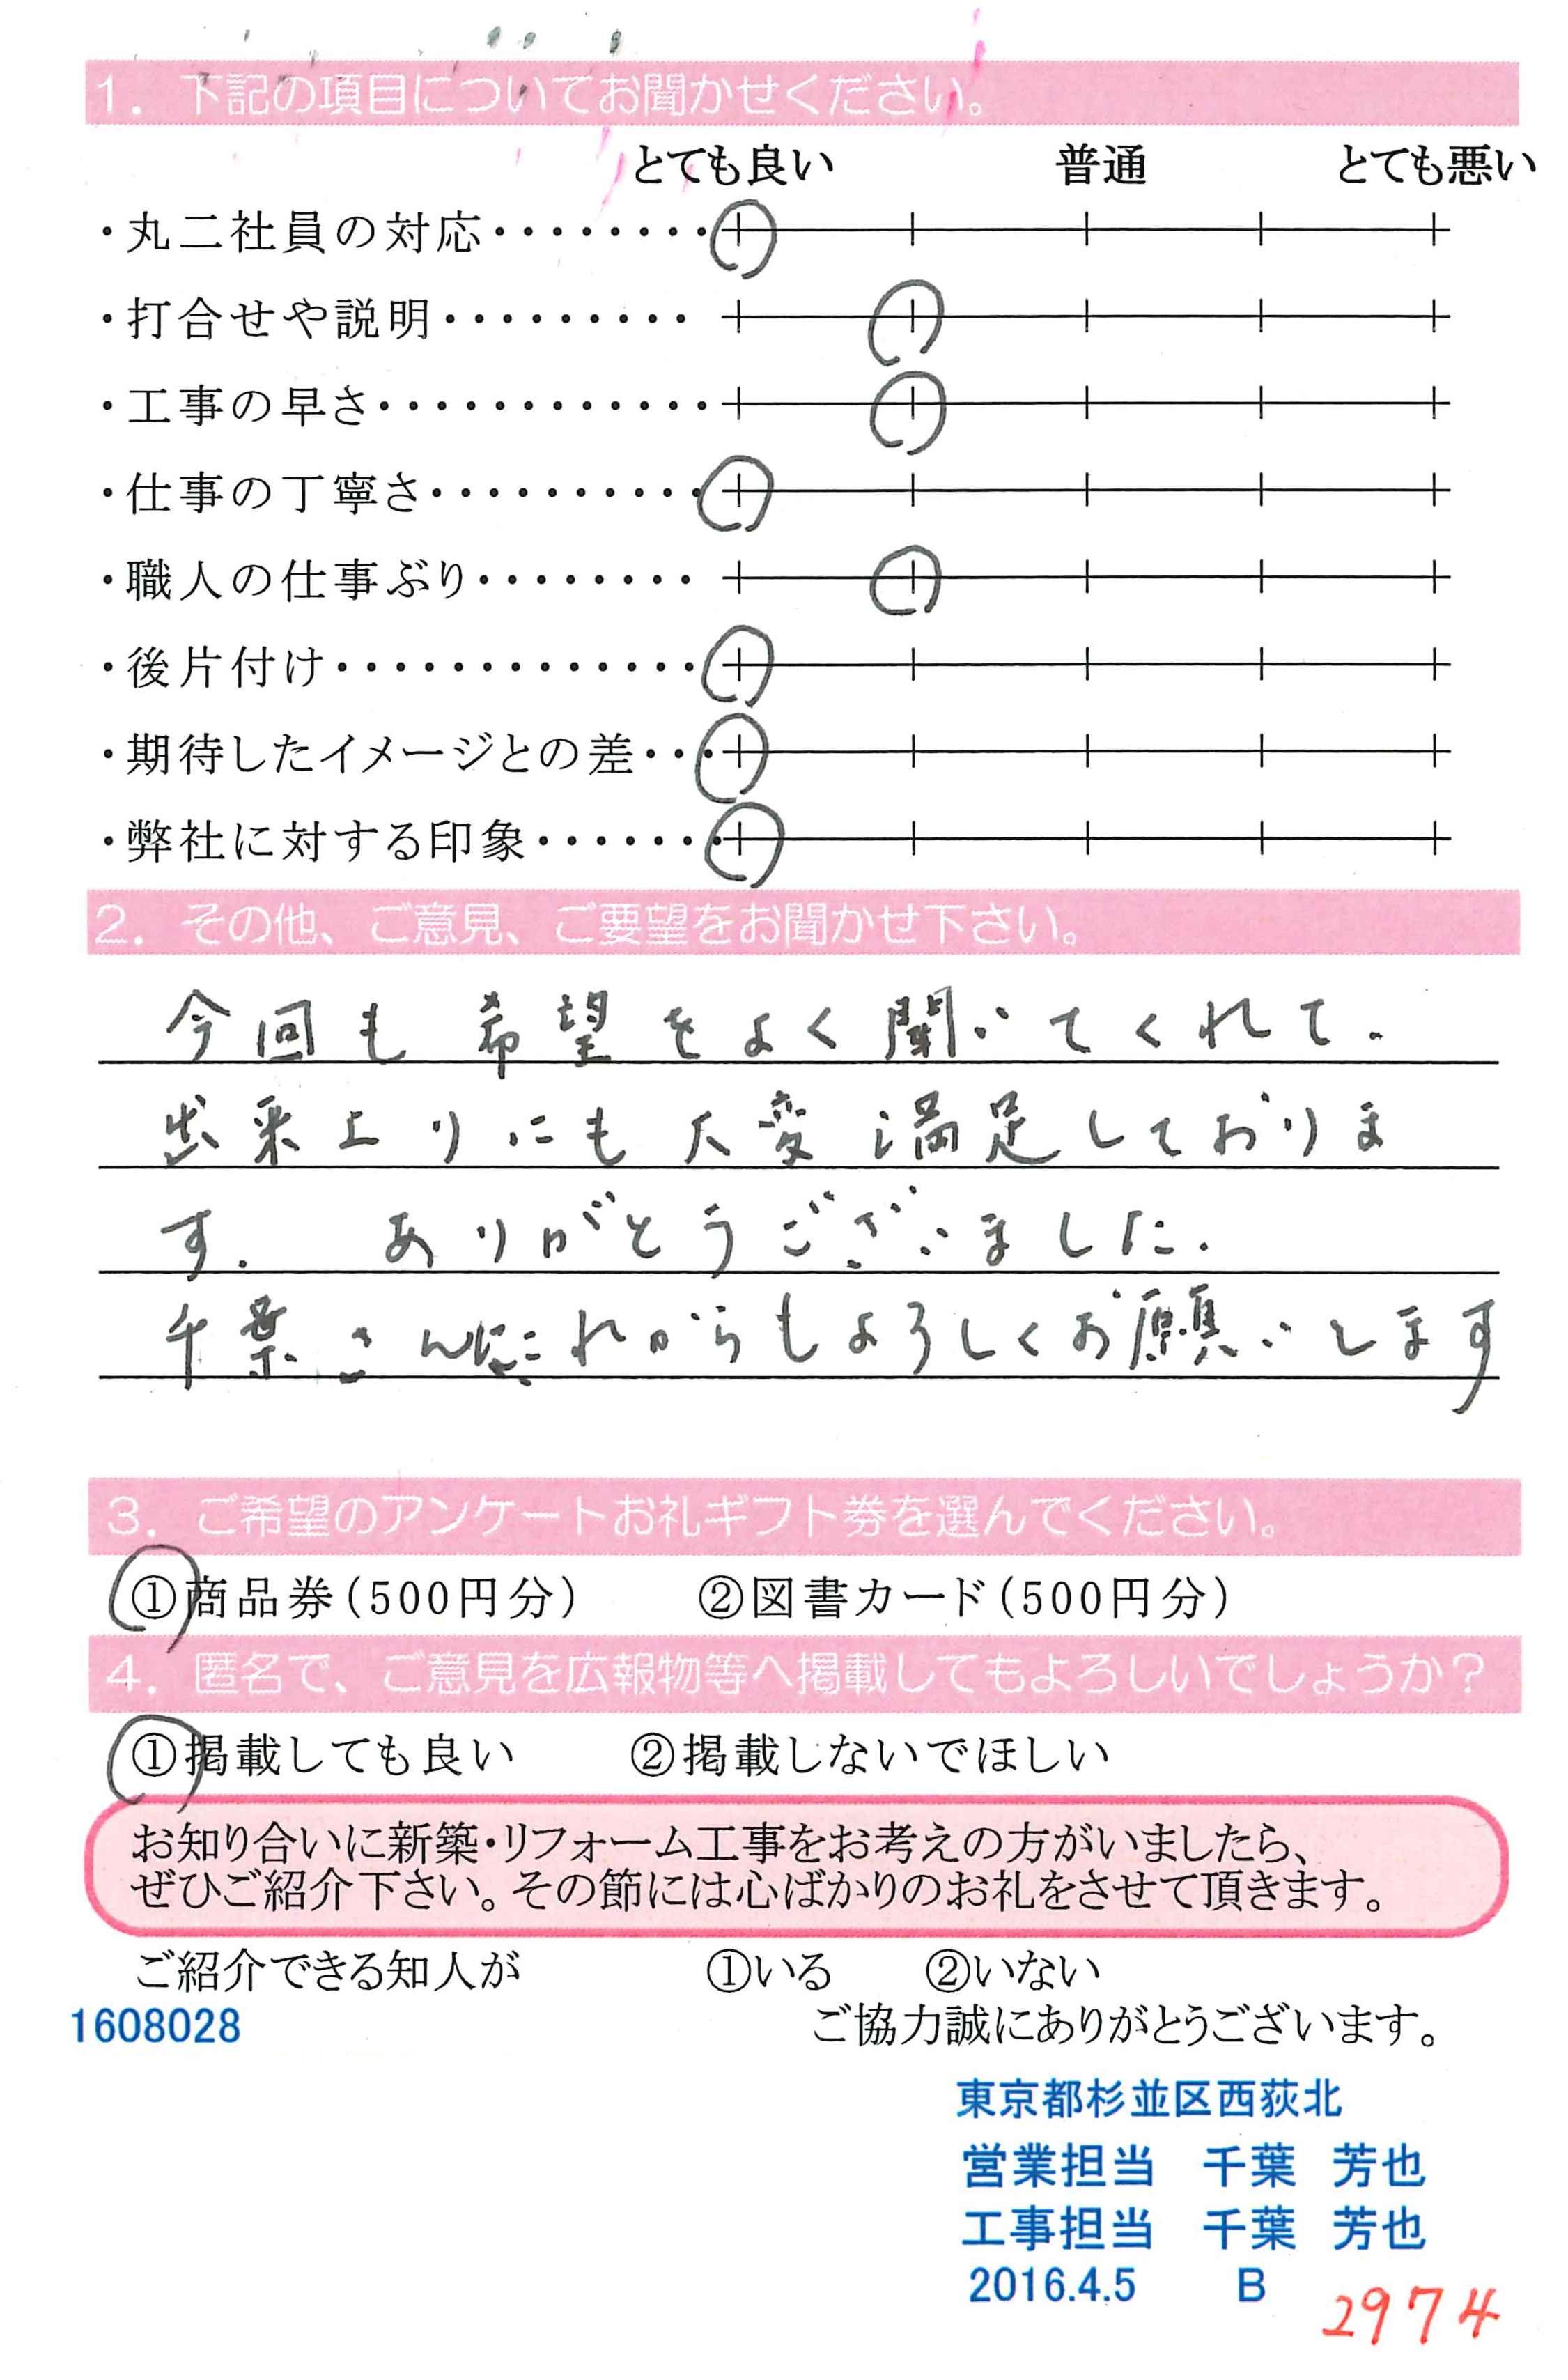 1. 下記の項目についてお聞かせください。
とても良い 普通 とても悪い
・丸二社員の対応・・・・・・・・
・打合せや説明・・・・・・・・・
・工事の早さ・・・・・・・・・・・・
・仕事の丁寧さ・・・・・・・・・・
・職人の仕事ぶり・・・・・・・・
・後片付け・・・・・・・・・・・・・
・期待したイメージとの差・・・
・弊社に対する印象・・・・・・・
2. その他、ご意見、ご要望をお聞かせ下さい。
今回も希望をよく聞いてくれて、
出来上りにも大変満足しておりま
す. ありがとうございました.
千葉さん これからもよろしくお願いします
3. ご希望のアンケートお礼ギフト券を選んでください。
①商品券(500円分) ②図書カード(500円分)
4. 匿名で、ご意見を広報物等へ掲載してもよろしいでしょうか?
①掲載しても良い ②掲載しないでほしい
お知り合いに新築・リフォーム工事をお考えの方がいましたら、
ぜひご紹介下さい。その節には心ばかりのお礼をさせて頂きます。
ご紹介できる知人が ①いる ②いない
1608028 ご協力誠にありがとうございます。
東京都杉並区西荻北
営業担当 千葉 芳也
工事担当 千葉 芳也
2016.4.5 B
2974